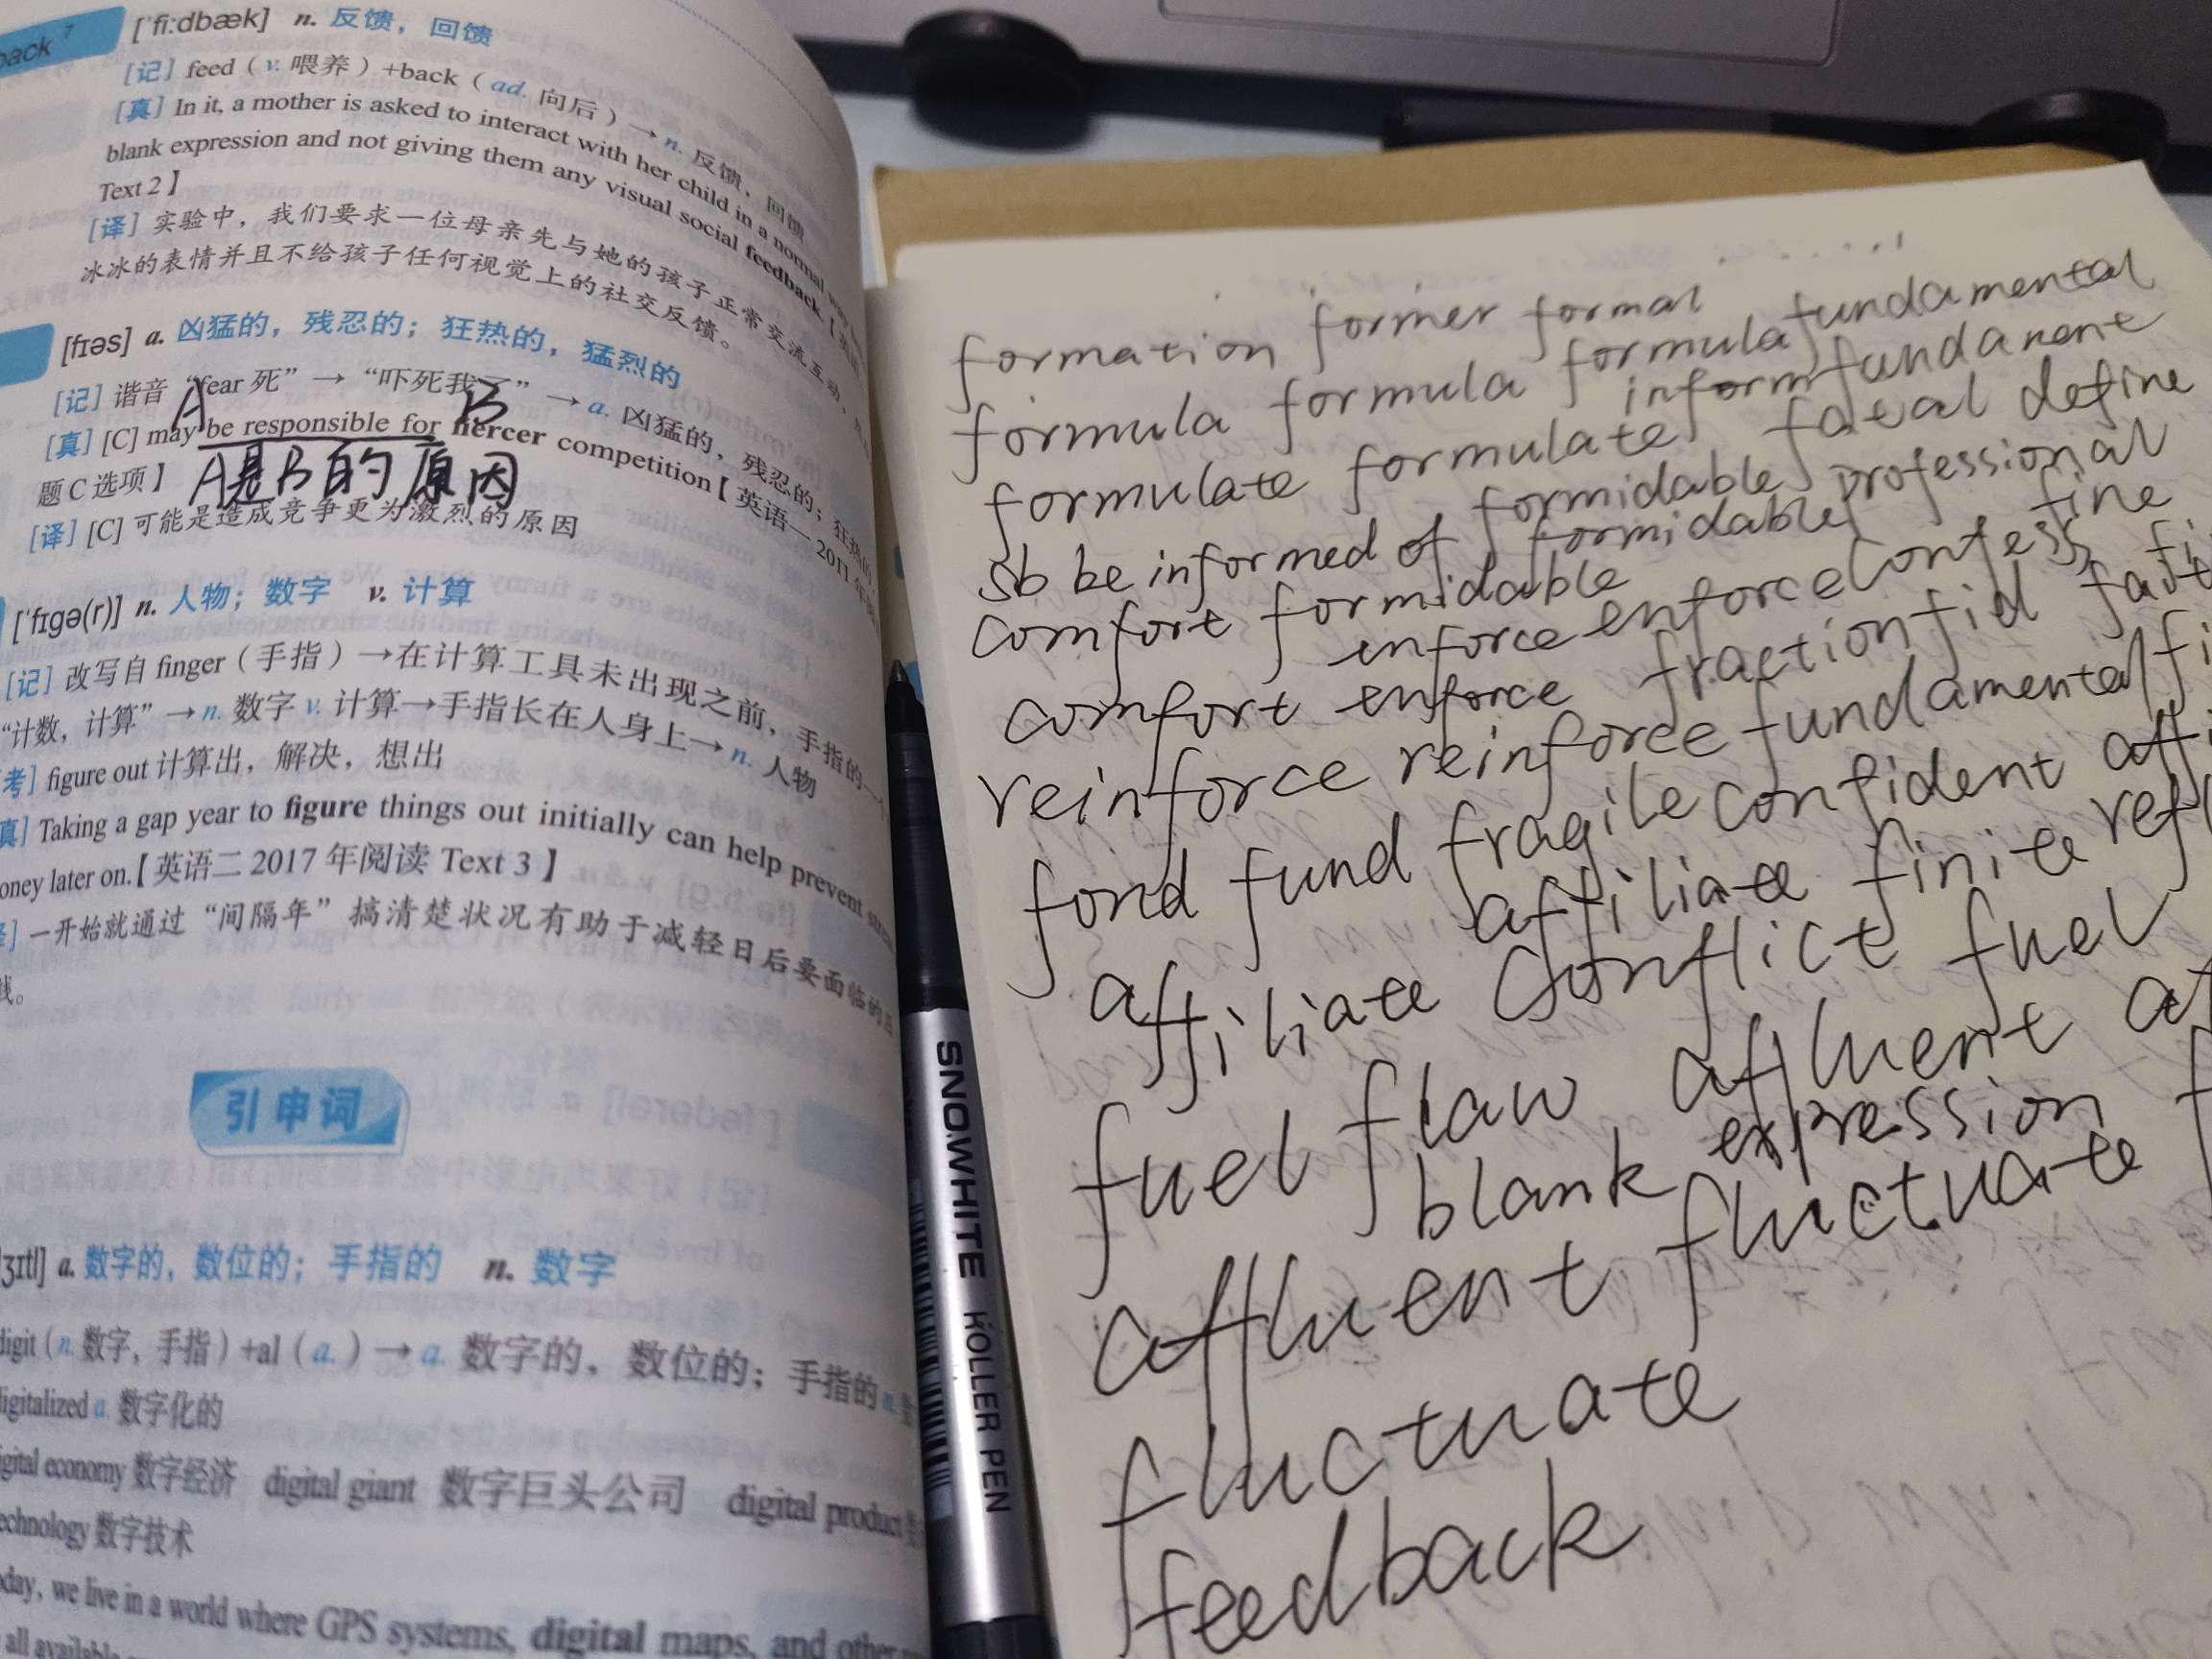 back 7 ['fi:dbæk] n. 反馈，回馈
[记] feed（v. 喂养）+back（ad. 向后）→ n. 反馈，回馈
[真] In it, a mother is asked to interact with her child in a normal
blank expression and not giving them any visual social feedback.【
Text 2】
[译] 实验中，我们要求一位母亲先与她的孩子正常交流互动，
冰冰的表情并且不给孩子任何视觉上的社交反馈。
[fɪəs] a. 凶猛的，残忍的；狂热的，猛烈的
[记] 谐音“fear 死”→“吓死我了”→ a. 凶猛的，残忍的；狂热的
A B
[真] [C] may be responsible for fiercer competition【英语一 2011 年
题 C 选项】
A是B的原因
[译] [C] 可能是造成竞争更为激烈的原因
['fɪgə(r)] n. 人物；数字 v. 计算
[记] 改写自 finger（手指）→在计算工具未出现之前，手指的一
“计数，计算”→ n. 数字 v. 计算→手指长在人身上→ n. 人物
考] figure out 计算出，解决，想出
真] Taking a gap year to figure things out initially can help prevent
oney later on.【英语二 2017 年阅读 Text 3】
译] 一开始就通过“间隔年”搞清楚状况有助于减轻日后要面临的
钱。
引申词
ʒɪtl] a. 数字的，数位的；手指的 n. 数字
digit（n. 数字，手指）+al（a.）→ a. 数字的，数位的；手指的 n.
digitalized a. 数字化的
igital economy 数字经济 digital giant 数字巨头公司 digital product
echnology 数字技术
oday, we live in a world where GPS systems, digital maps, and other
all available
SNOWHITE ROLLER PEN
formation former formal
formula formula formula fundamental
formulate formulate inform fundament
sb be informed of formidable fatal define
comfort formidable formidable professional
comfort enforce enforce enforce confess fine
reinforce reinforce fraction fid
fond fund fragile fundamental
affiliate affiliate confident
conflict finite
fuel flaw affluent fuel
blank expression
affluent fluctuate
fluctuate
feedback